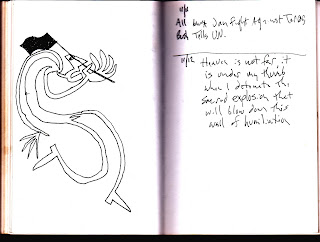 11/10
All must Join Fight Against Terror
Bush Tells UN.
11/12
Heaven is not far, it
is under my thumb
when I detonate this
sacred explosion that
will blow down this
wall of humiliation